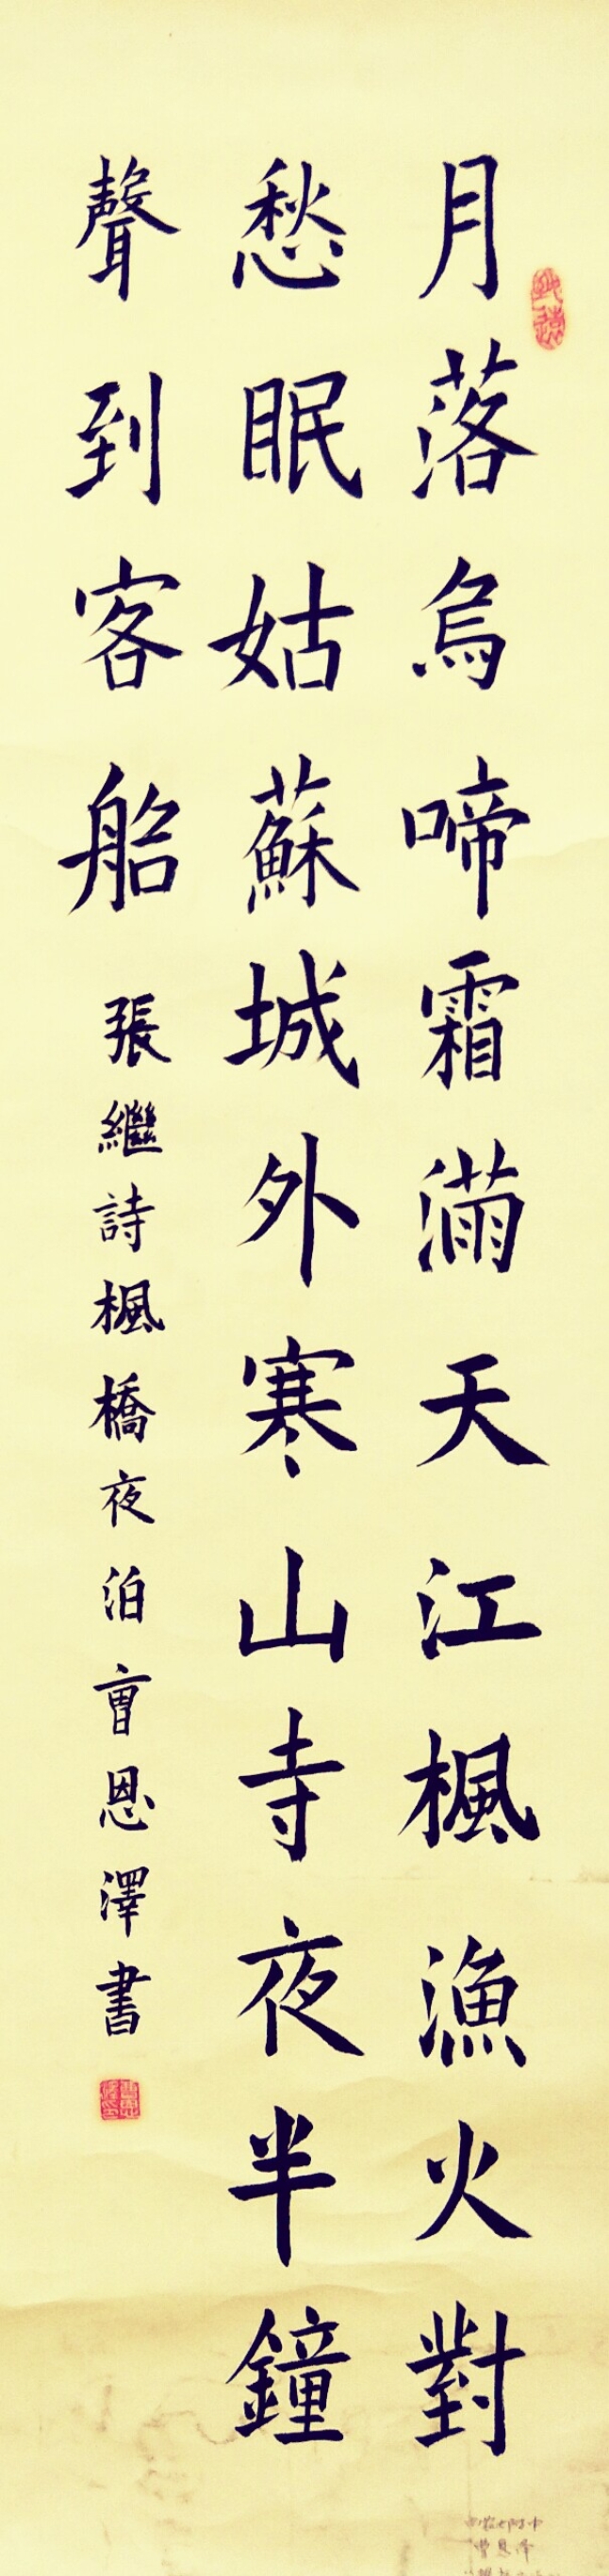 月落烏啼霜滿天江楓漁火對
愁眠姑蘇城外寒山寺夜半鐘
聲到客船 張繼詩楓橋夜泊 曹恩澤書
曹恩泽